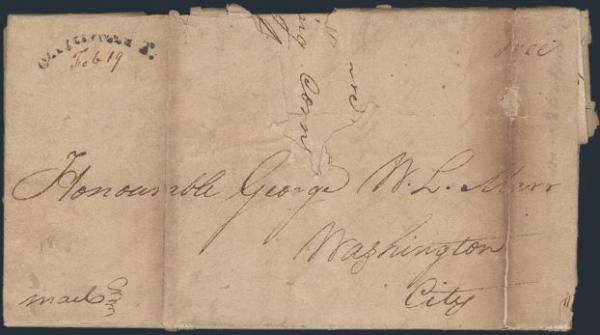 T.
Feb 19
Free
Honourable George W. L. Marr
Washington
City
mail